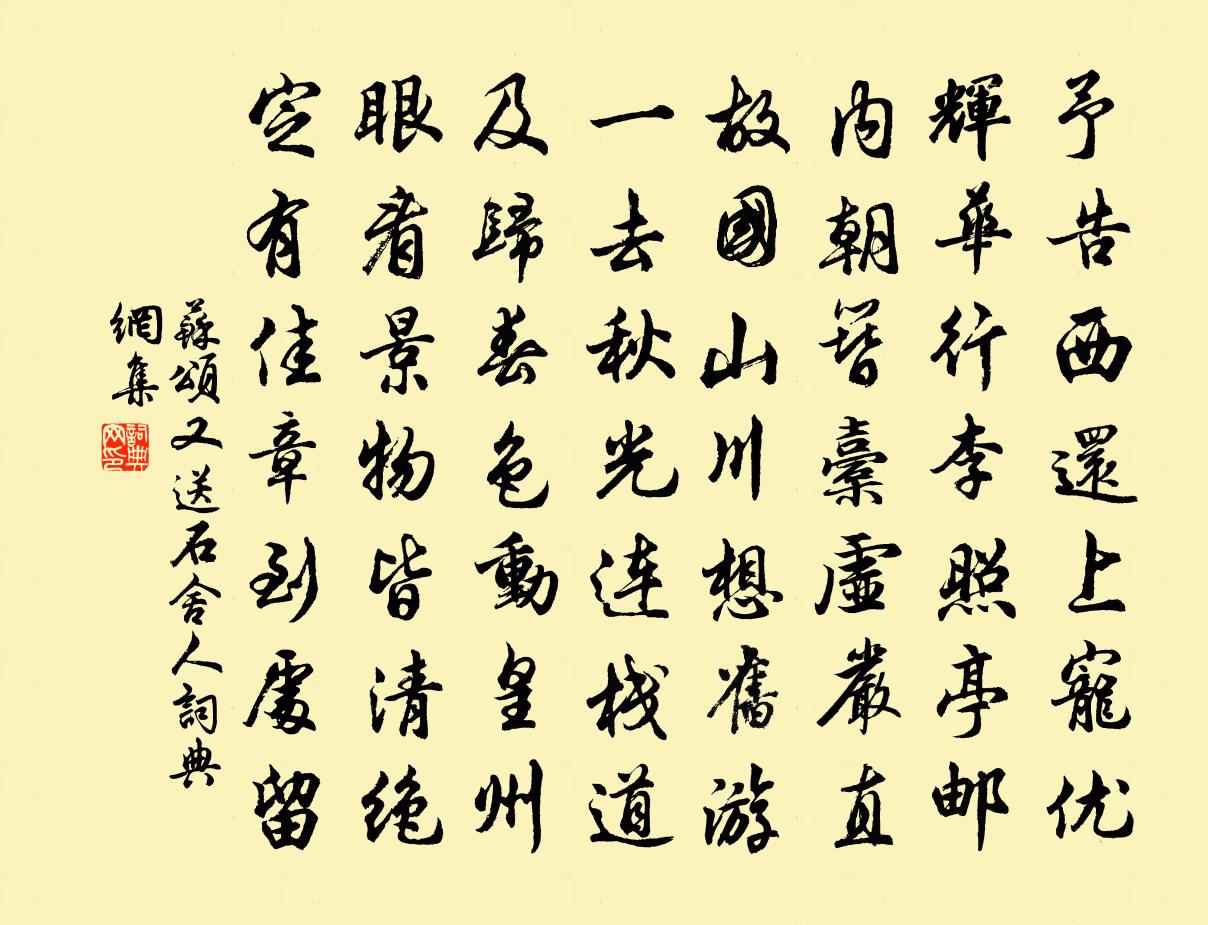 予告西還上寵优
輝華行李照亭邮
内朝簪橐虛嚴直
故國山川想舊游
一去秋光連棧道
及歸春色動皇州
眼看景物皆清绝
定有佳章到處留
蘇頌又送石舍人詞典
網集
詞典
网印